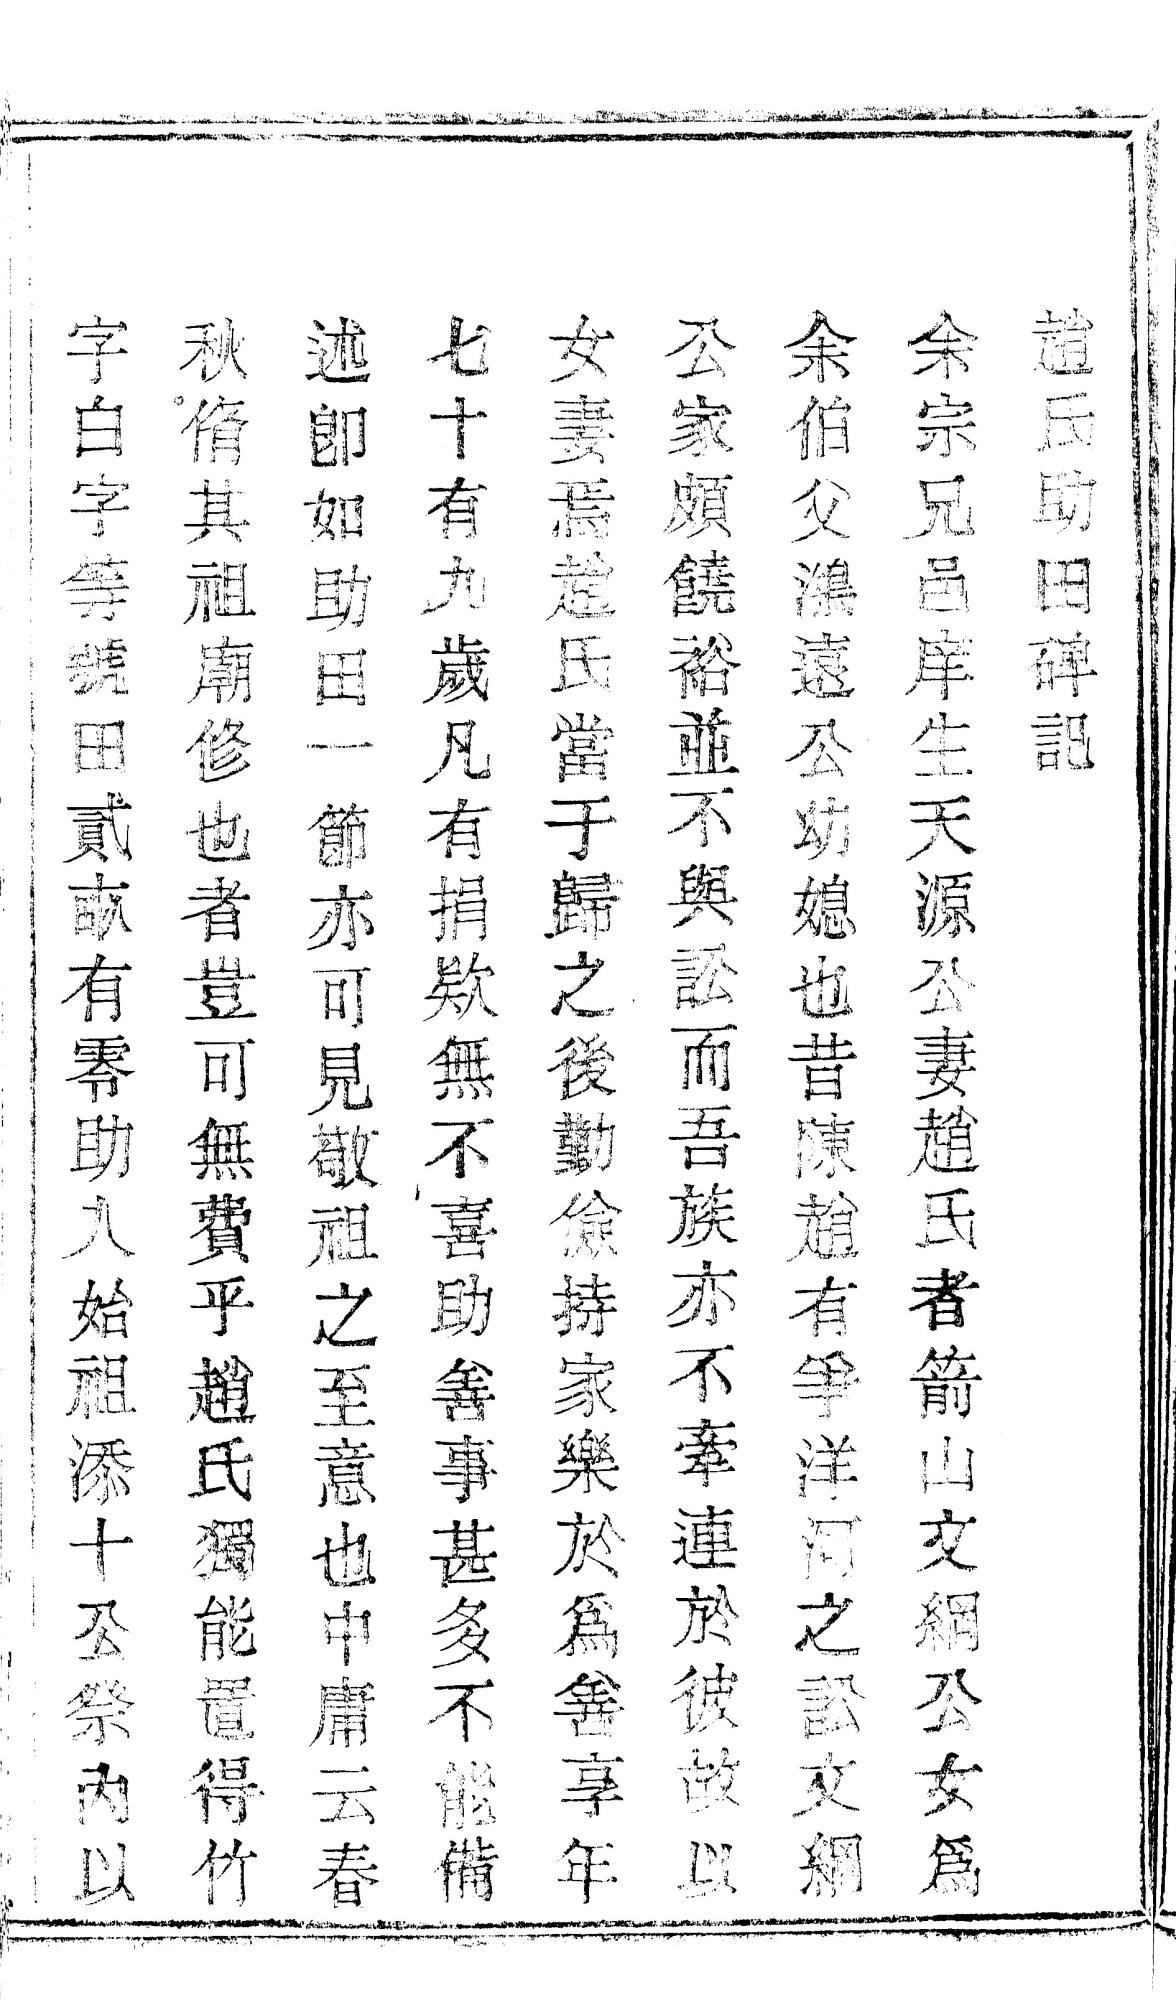 趙氏助田碑記
余宗兄邑庠生天源公妻趙氏者箭山文綱公女爲
余伯父鴻遠公幼媳也昔陳趙有爭洋河之訟文綱
公家頗饒裕並不與訟而吾族亦不牽連於彼故以
女妻焉趙氏當于歸之後勤儉持家樂於爲善享年
七十有九歲凡有捐欵無不喜助善事甚多不能備
述卽如助田一節亦可見敬祖之至意也中庸云春
秋脩其祖廟修也者豈可無費乎趙氏獨能置得竹
字白字等號田貳畝有零助入始祖添十公祭內以